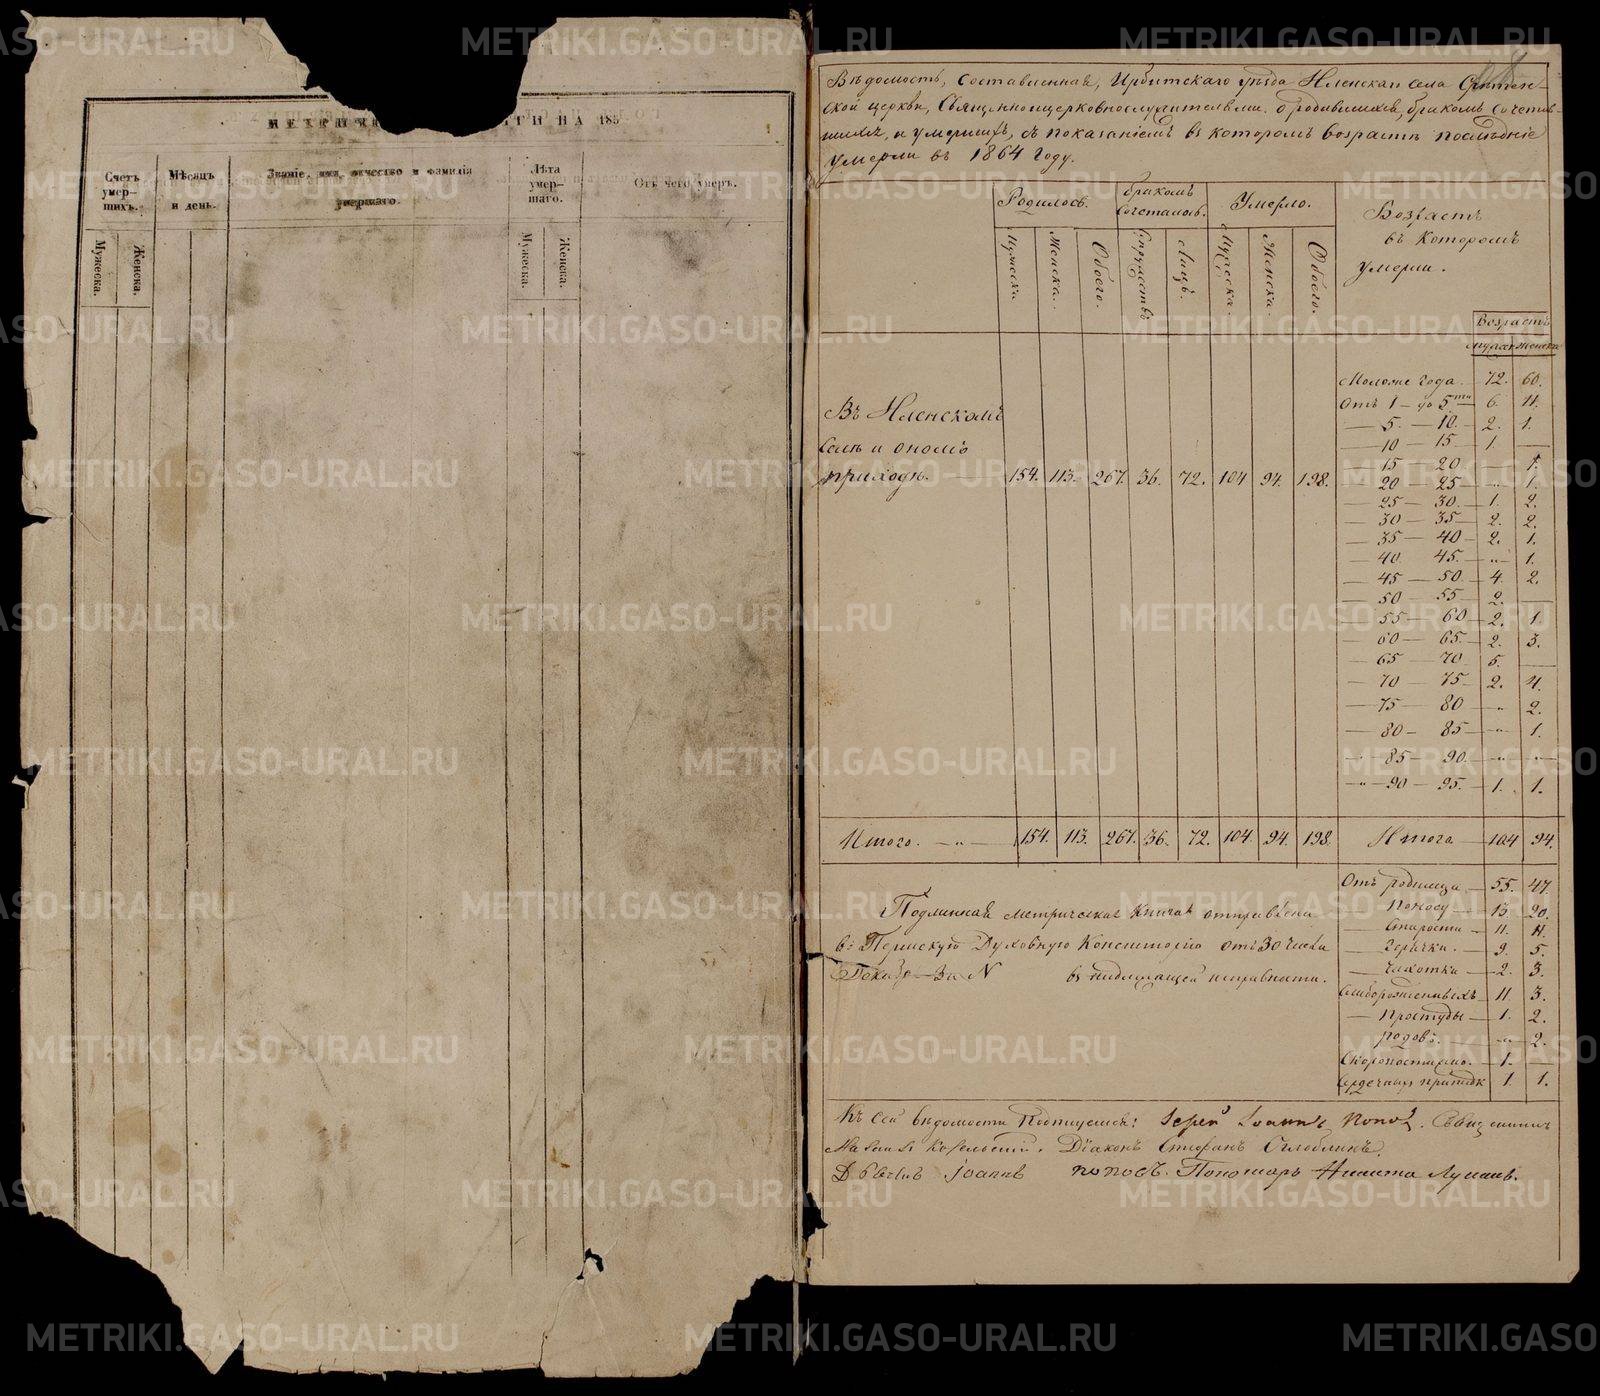 МЕТРИ ТИ НА 185
Счетъ умер-шихъ.
Мѣсяцъ и день.
Званіе, имя, отчество и фамилія умершаго.
Лѣта умер-шаго.
Отъ чего умеръ.
Мужеска. Женска. Мужеска. Женска.
Вѣдомость, составленная, Ирбитскаго уѣзда села Срѣтен-
ской церкви, Священноцерковнослужителями о родившихся, бракомъ сочетав-
шихся, и умершихъ, съ показаніемъ въ которомъ возрастѣ послѣдніе
умерли въ 1864 году.
Родилось. бракомъ сочеталось. Умерло. Возрастъ въ которомъ умерли.
Мужеска. Женска. Обоего. Супружествъ Лицъ. Мужеска. Женска. Обоего.
Возрастъ
мужск женск
Моложе года 72. 60.
Отъ 1 до 5ти 6. 11.
5. 10. 2. 1.
10 15 1.
15 20 1.
20 25 " 1.
25 30. 1. 2.
30 35 2. 2.
35 40 2. 1.
40. 45. " 1.
45 50. 4. 2.
50 55 2.
55 60 2. 1.
60 65. 2. 3.
65 70 5.
70 75 2. 4.
75 80 " 2.
80 85 " 1.
85 90. " "
90 95. 1. 1.
Въ
селѣ и онаго
приходѣ. 154. 113. 267. 36. 72. 104 94. 198.
Итого. " 154. 113. 267. 36. 72. 104 94. 198. Итога 104 94.
Отъ родимца 55. 47.
Поносу 13. 20.
Старости 11. 11.
Горячки. 9. 5.
Чахотки 2. 3.
Слаборожденныхъ 11. 3.
Простуды 1. 2.
родовъ. " 2.
Скоропостижно. 1.
Сердечныхъ припадк 1. 1.
Подлинная метрическая книга отправлена
въ Пермскую Духовную Консисторію отъ 30 числа
За N въ надлежащей исправности.
Къ сей вѣдомости подписуемся: Іерей Іоаннъ Поповъ. Священникъ
Діаконъ Стефанъ
Іоаннъ Поповъ. Пономарь Никита